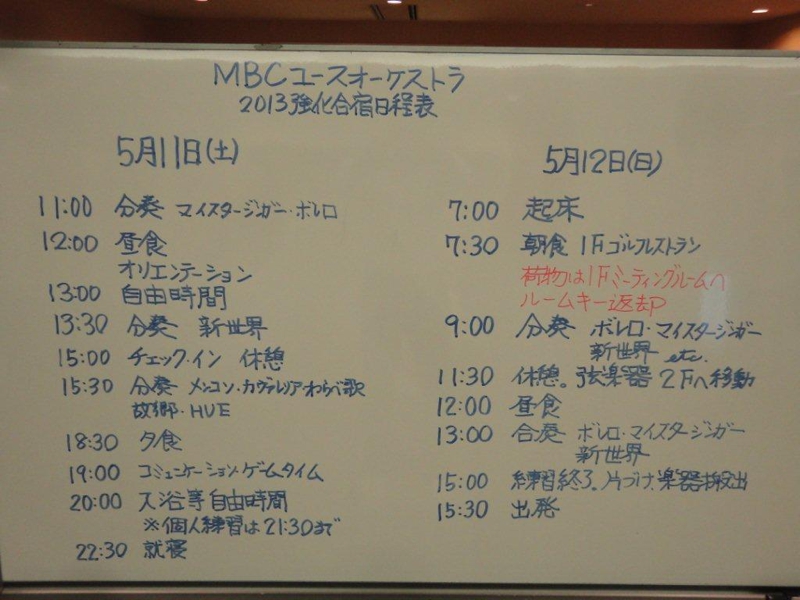 MBCユースオーケストラ
2013強化合宿日程表
5月11日(土)
11:00 分奏 マイスタージンガー・ボレロ
12:00 昼食
オリエンテーション
13:00 自由時間
13:30 分奏 新世界
15:00 チェック・イン 休憩
15:30 分奏 メンコン・カヴァレリア・わらべ歌
故郷・HUE
18:30 夕食
19:00 コミュニケーション・ゲームタイム
20:00 入浴等自由時間
※個人練習は21:30まで
22:30 就寝
5月12日(日)
7:00 起床
7:30 朝食 1Fゴルフレストラン
荷物は1Fミーティングルームへ
ルームキー返却
9:00 分奏 ボレロ・マイスタージンガー
新世界 etc.
11:30 休憩。弦楽器 2Fへ移動
12:00 昼食
13:00 合奏 ボレロ・マイスタージンガー
新世界
15:00 練習終了。片づけ、楽器搬出
15:30 出発